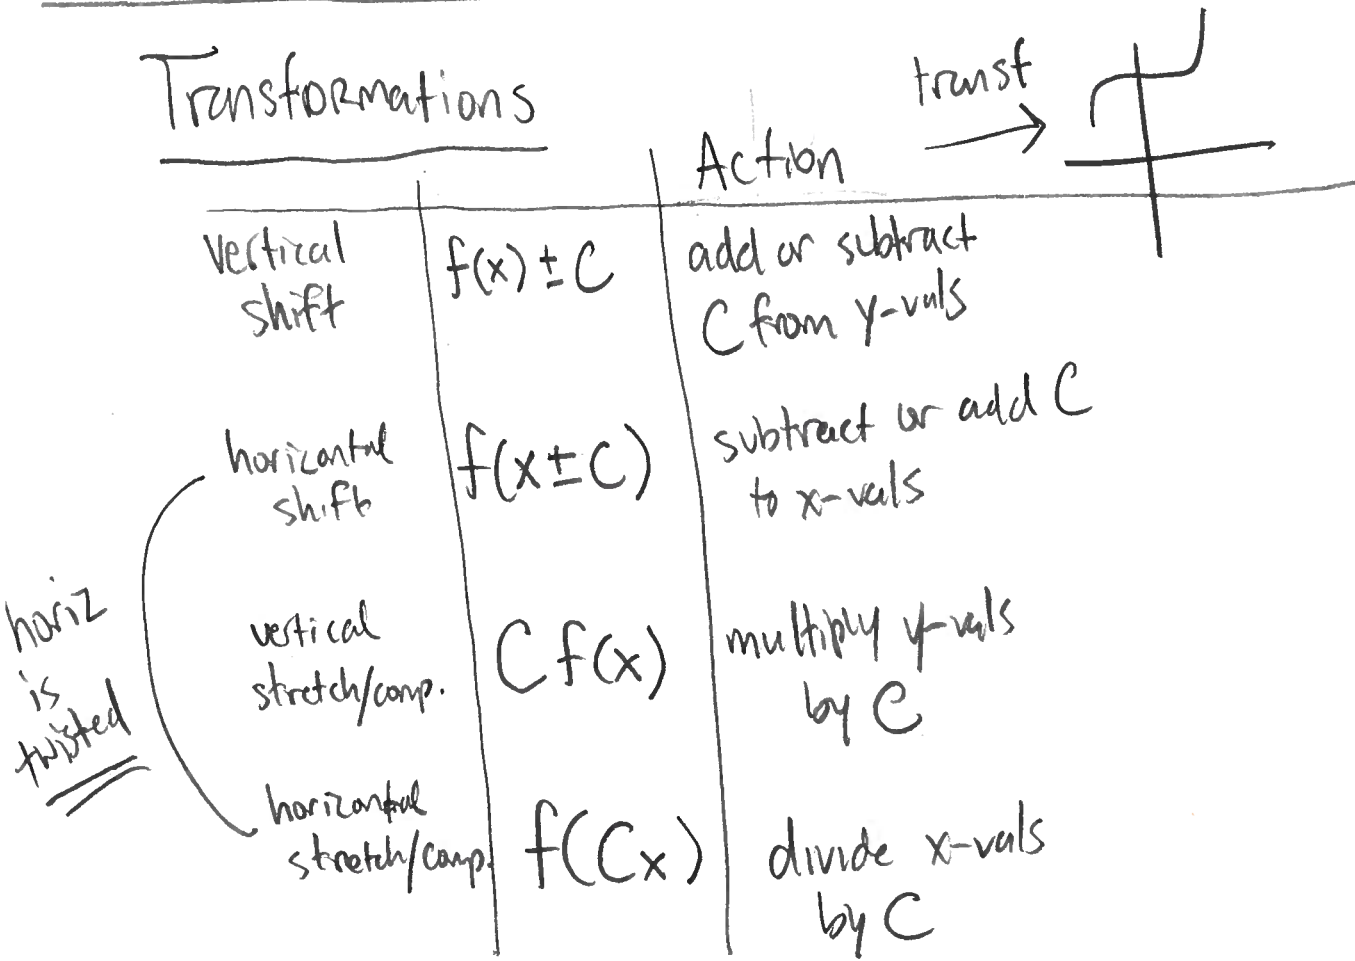 Transformations
transf
Action
vertical
shift
f(x) ± C
add or subtract
C from y-vals
horizontal
shift
f(x ± C)
subtract or add C
to x-vals
horiz
is
twisted
vertical
stretch/comp.
C f(x)
multiply y-vals
by C
horizontal
stretch/comp.
f(Cx)
divide x-vals
by C